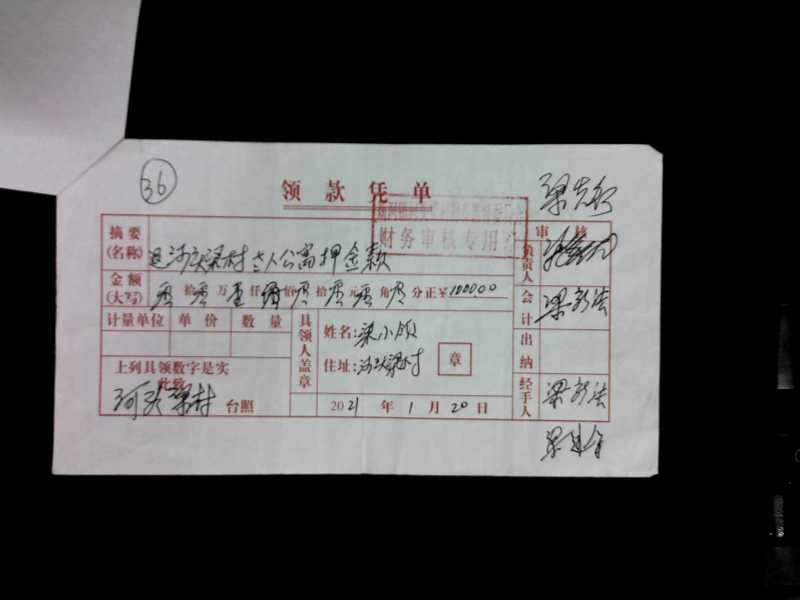 36
领款凭单
财务审核专用章
审核
摘要(名称) 退河头梁村老人公寓押金款
金额(大写) 零拾零万壹仟零佰零拾零元零角零分正¥1000.00
负责人
计量单位 单价 数量
具领人盖章
姓名:梁小
住址:河头梁村
章
会计 梁新法
出纳
上列具领数字是实
此致
河头梁村 台照
2021年1月20日
经手人 梁新法